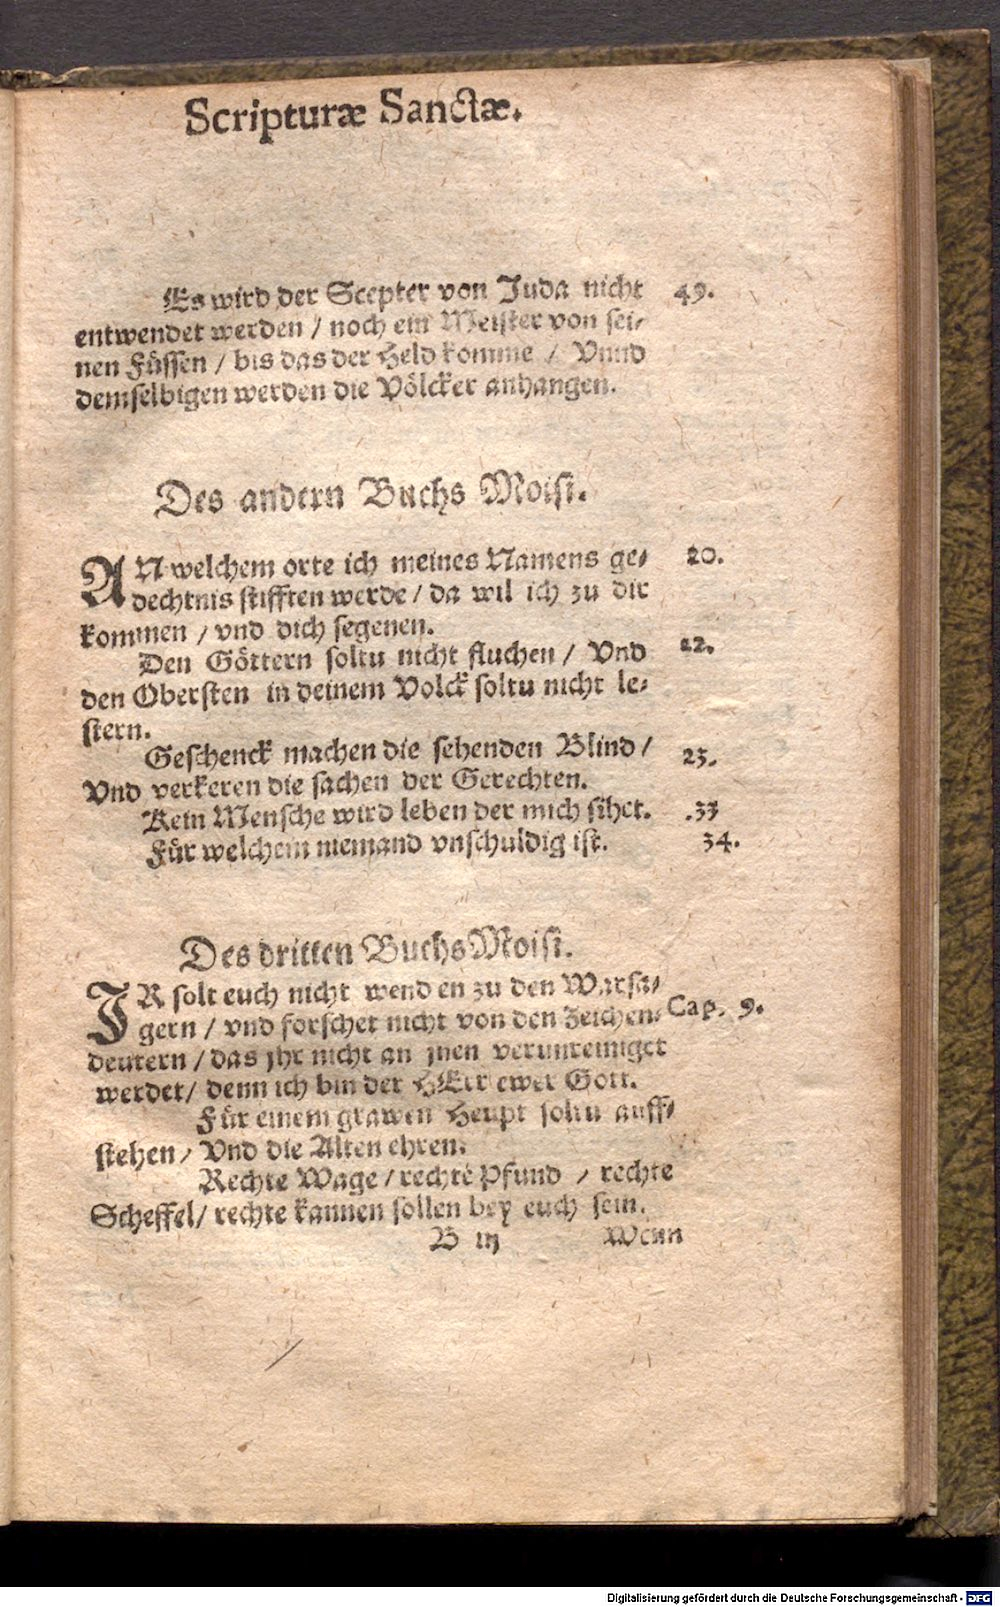 Scripturæ Sanctæ.
Es wird der Scepter von Juda nicht 49.
entwendet werden / noch ein Meister von sei-
nen Füssen / bis das der Held komme / Vnnd
demselbigen werden die Völcker anhangen.
Des andern Buchs Moisi.
AN welchem orte ich meines Namens ge- 20.
dechtnis stifften werde / da wil ich zu dir
kommen / vnd dich segenen.
Den Göttern soltu nicht fluchen / Vnd 22.
den Obersten in deinem Volck soltu nicht le-
stern.
Geschenck machen die sehenden Blind / 23.
Vnd verkeren die sachen der Gerechten.
Kein Mensche wird leben der mich sihet. .33
Für welchem niemand vnschuldig ist. 34.
Des dritten Buchs Moisi.
IR solt euch nicht wenden zu den Warsa-
gern / vnd forschet nicht von den Zeichen- Cap. 9.
deutern / das jhr nicht an jnen verunreiniget
werdet / denn ich bin der HErr ewer Gott.
Für einem grawen Heupt soltu auff-
stehen / Vnd die Alten ehren.
Rechte Wage / rechte Pfund / rechte
Scheffel / rechte kannen sollen bey euch sein.
B iij Wenn
Digitalisierung gefördert durch die Deutsche Forschungsgemeinschaft - DFG